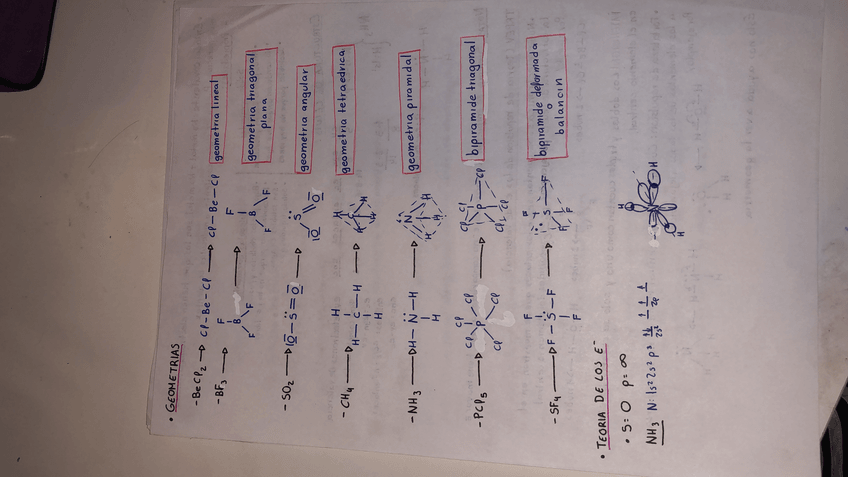 • GEOMETRIAS
- BeCl₂ → Cl - Be - Cl → Cl - Be - Cl geometria lineal
- BF₃ → F B F F → F B F F geometria triagonal plana
- SO₂ → |O̲ - S̈ = O̲| → S̈ |O̲ O̲| geometria angular
- CH₄ → H - C - H H H → H H H H geometria tetraedrica
- NH₃ → H - N̈ - H H → N H H H geometria piramidal
- PCl₅ → Cl Cl P Cl Cl Cl → Cl Cl P Cl Cl Cl bipiramide triagonal
- SF₄ → F F - S̈ - F F → F S - F F F bipiramide deformada o balancin
• TEORIA DE LOS E⁻
• S = O p = ∞
NH₃ N: 1s² 2s² p³ 2s² 2p H H H